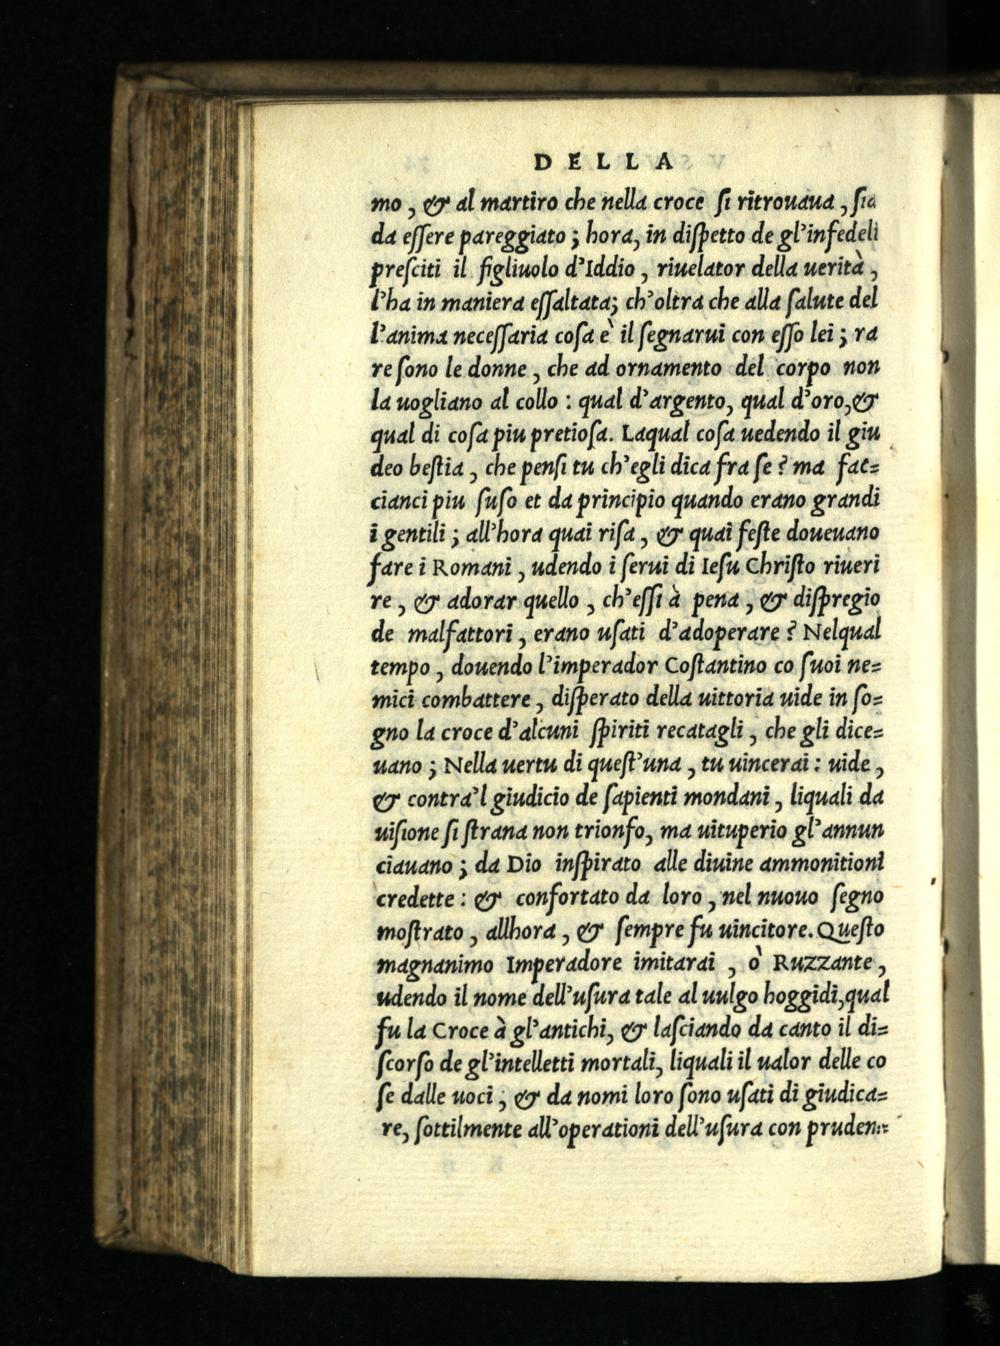 DELLA
mo, & al martiro che nella croce si ritrouaua, sia
da essere pareggiato; hora, in dispetto de gl'infedeli
presciti il figliuolo d'Iddio, riuelator della uerità,
l'ha in maniera essaltata; ch'oltra che alla salute del
l'anima necessaria cosa è il segnarui con esso lei; ra
re sono le donne, che ad ornamento del corpo non
la uogliano al collo: qual d'argento, qual d'oro, &
qual di cosa piu pretiosa. Laqual cosa uedendo il giu
deo bestia, che pensi tu ch'egli dica fra se? ma fac=
cianci piu suso et da principio quando erano grandi
i gentili; all'hora quai risa, & quai feste doueuano
fare i Romani, udendo i serui di Iesu Christo riueri
re, & adorar quello, ch'essi à pena, & dispregio
de malfattori, erano usati d'adoperare? Nelqual
tempo, douendo l'imperador Costantino co suoi ne=
mici combattere, disperato della uittoria uide in so=
gno la croce d'alcuni spiriti recatagli, che gli dice=
uano; Nella uertu di quest'una, tu uincerai: uide,
& contra'l giudicio de sapienti mondani, liquali da
uisione si strana non trionfo, ma uituperio gl'annun
ciauano; da Dio inspirato alle diuine ammonitioni
credette: & confortato da loro, nel nuouo segno
mostrato, allhora, & sempre fu uincitore. Questo
magnanimo Imperadore imitarai, ò Ruzzante,
udendo il nome dell'usura tale al uulgo hoggidi, qual
fu la Croce à gl'antichi, & lasciando da canto il di=
scorso de gl'intelletti mortali, liquali il ualor delle co
se dalle uoci, & da nomi loro sono usati di giudica=
re, sottilmente all'operationi dell'usura con pruden=